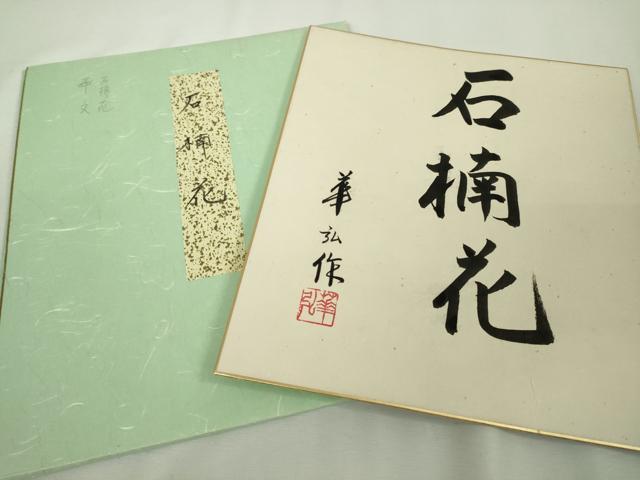 石楠花
華弘作
華弘
石楠花
石楠花
平文